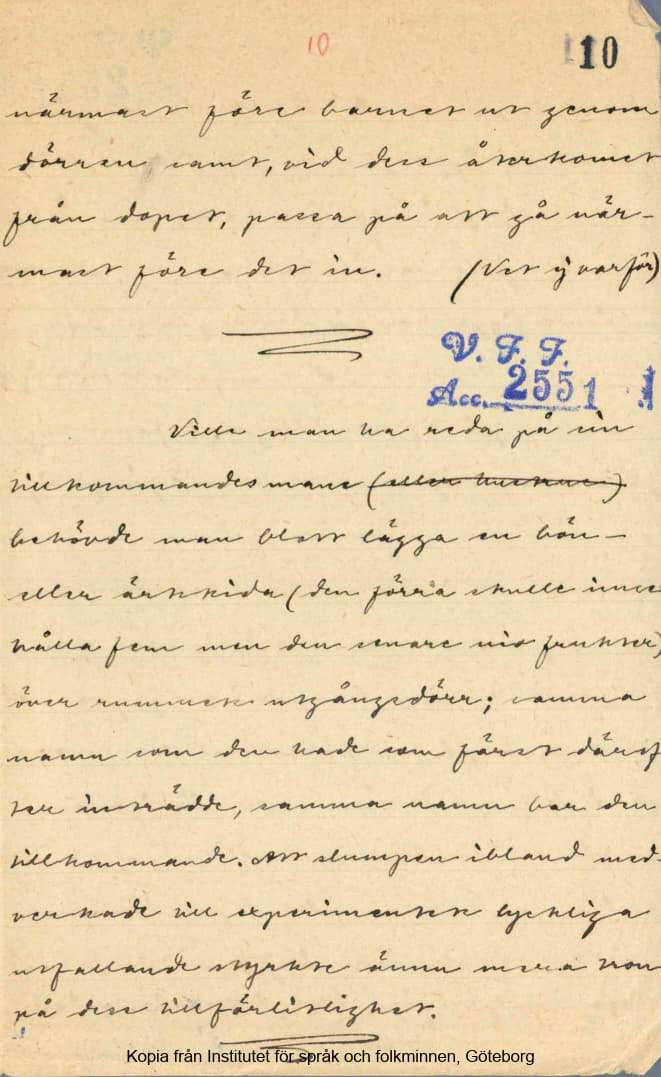 10
10
närmast före barnet ut genom
dörren, samt, vid dess återkomst
från dopet, passa på att gå när-
mast före det in. (Vet ej varför)
V. F. F.
Acc. 2551
Ville man ha reda på sin
tillkommandes namn (eller hustrus)
behövde man blott lägga en bön-
eller ärtskida (den förra skulle inne-
hålla fem men den senare nio frukter)
över rummets utgångsdörr; samma
namn som den hade som först däref-
ter inträdde, samma namn bar den
tillkommande. Att slumpen ibland med-
verkade till experimentets lyckliga
utfallande styrkte ännu mera tron
på dess tillförlitlighet.
Kopia från Institutet för språk och folkminnen, Göteborg